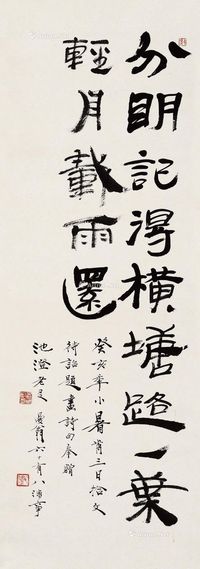 分明記得橫塘路一葉
輕舟載雨還
癸亥年小暑前三日拾文
待詔題畫詩句奉贈
池澄老 曼翁六十有八